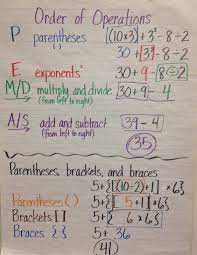 Order of Operations
P parentheses [(10×3)]+3²-8÷2
( ) 30+[3²]-8÷2
E exponents² 30+9-[8÷2]
M/D multiply and divide [30+9]-4
(from left to right)
A/S add and subtract [39-4]
(from left to right) 35
Parentheses, brackets, and braces
5+{[(10-2)+1] ×6}
Parentheses ( ) 5+{[ 5+1]×6}
Brackets [ ] 5+{ 6 ×6}
Braces { } 5+ 36
41